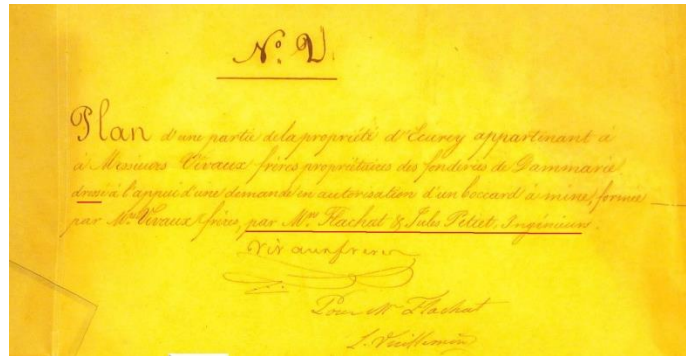 N° 2.
Plan d'une partie de la propriété d'Ecurey appartenant à
à Messieurs Vivaux frères propriétaires des fonderies de Dammarie
dressé à l'appui d'une demande en autorisation d'un boccard à mine, formée
par Mrs Vivaux frères, par Mrs Flachat & Jules Petiet, Ingénieurs.
Vivaux frères
Pour Mr Flachat
L. Vuillemin